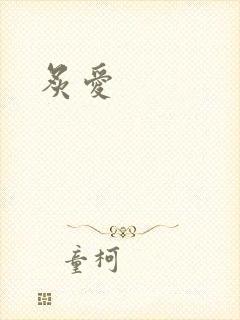 炙愛
童柯